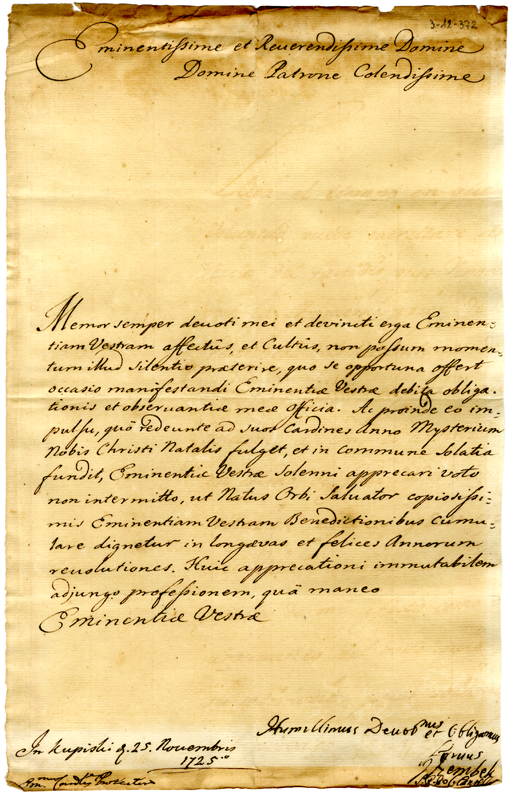 J-12-372
Eminentissime et Reverendissime Domine
Domine Patrone Colendissime
Memor semper devoti mei et devincti erga Eminen-
tiam Vestram affectûs, et Cultûs, non possum momen-
tum illud silentio præterire, quo se opportuna offert
occasio manifestandi Eminentiæ Vestræ debita obliga-
tionis et observantiæ meæ officia. Ac proinde eo im-
pulsu, quô redeunte ad suos Cardines anno Mysterium
Nobis Christi Natalis fulget, et in commune Solatia
fundit, Eminentiæ Vestræ Solenni apprecari voto
non intermitto, ut Natus Orbi Salvator copiosissi-
mis Eminentiam Vestram Benedictionibus Cumu-
lare dignetur in longævas et felices Annorum
revolutiones. Huic apprecationi immutabilem
adjungo professionem, quâ maneo
Eminentiæ Vestræ
Humillimus Devotmus et Obligmus
In Kupiski d. 25. Novembris
1725.
Szembek